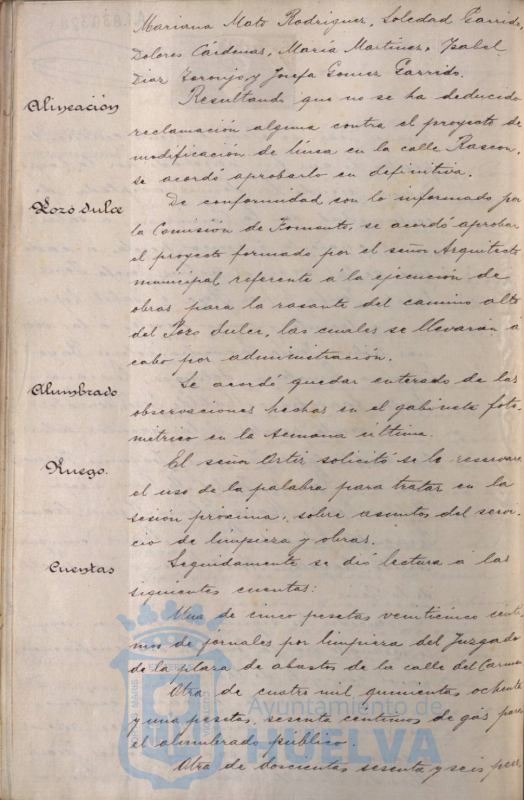 Mariana Mato Rodriguez, Soledad Garrido,
Dolores Cárdenas, María Martinez, Ysabel
Diaz y Josefa Gomez Garrido.
Alineación
Resultando que no se ha deducido
reclamación alguna contra el proyecto de
modificación de linea en la calle Rascon,
se acordó aprobarlo en definitiva.
Pozo dulce
De conformidad con lo informado por
la Comisión de Fomento, se acordó aprobar
el proyecto formado por el señor Arquitecto
municipal referente á la ejecución de
obras para la rasante del camino alto
del Pozo dulce, las cuales se llevarán á
cabo por administración.
Alumbrado
Se acordó quedar enterado de las
observaciones hechas en el gabinete foto-
métrico en la semana última.
Ruego.
El señor Ortiz solicitó se le reservara
el uso de la palabra para tratar en la
sesión próxima, sobre asuntos del servi-
cio de limpieza y obras.
Cuentas
Seguidamente se dió lectura á las
siguientes cuentas:
Una de cinco pesetas veinticinco cénti-
mos de jornales por limpieza del Juzgado
de la plaza de abastos de la calle del Carmen
Otra de cuatro mil quinientas ochenta
y una pesetas, sesenta céntimos de gas para
el alumbrado público.
Otra de doscientas sesenta y seis pese-
Ayuntamiento de
HUELVA